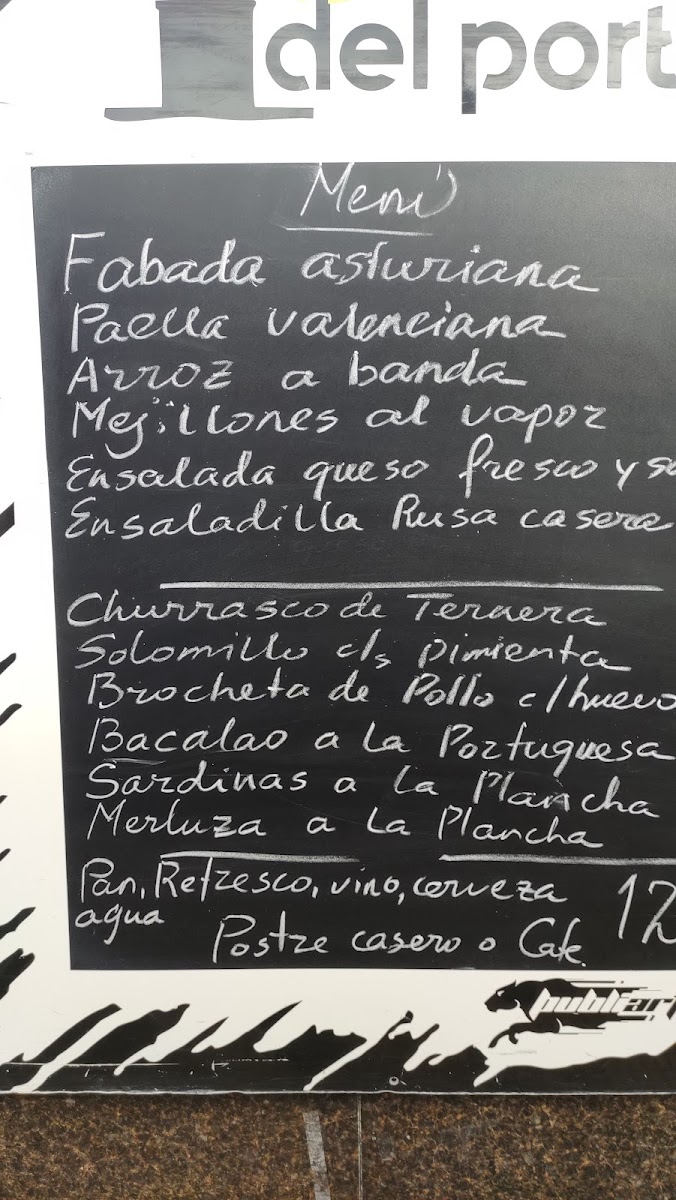 del port
Menú
Fabada asturiana
Paella valenciana
Arroz a banda
Mejillones al vapor
Ensalada queso fresco y
Ensaladilla Rusa casera
Churrasco de Ternera
Solomillo c/s pimienta
Brocheta de Pollo c/huevo
Bacalao a la Portuguesa
Sardinas a la Plancha
Merluza a la Plancha
Pan, Refresco, vino, cerveza 12
agua
Postre casero o Cafe.